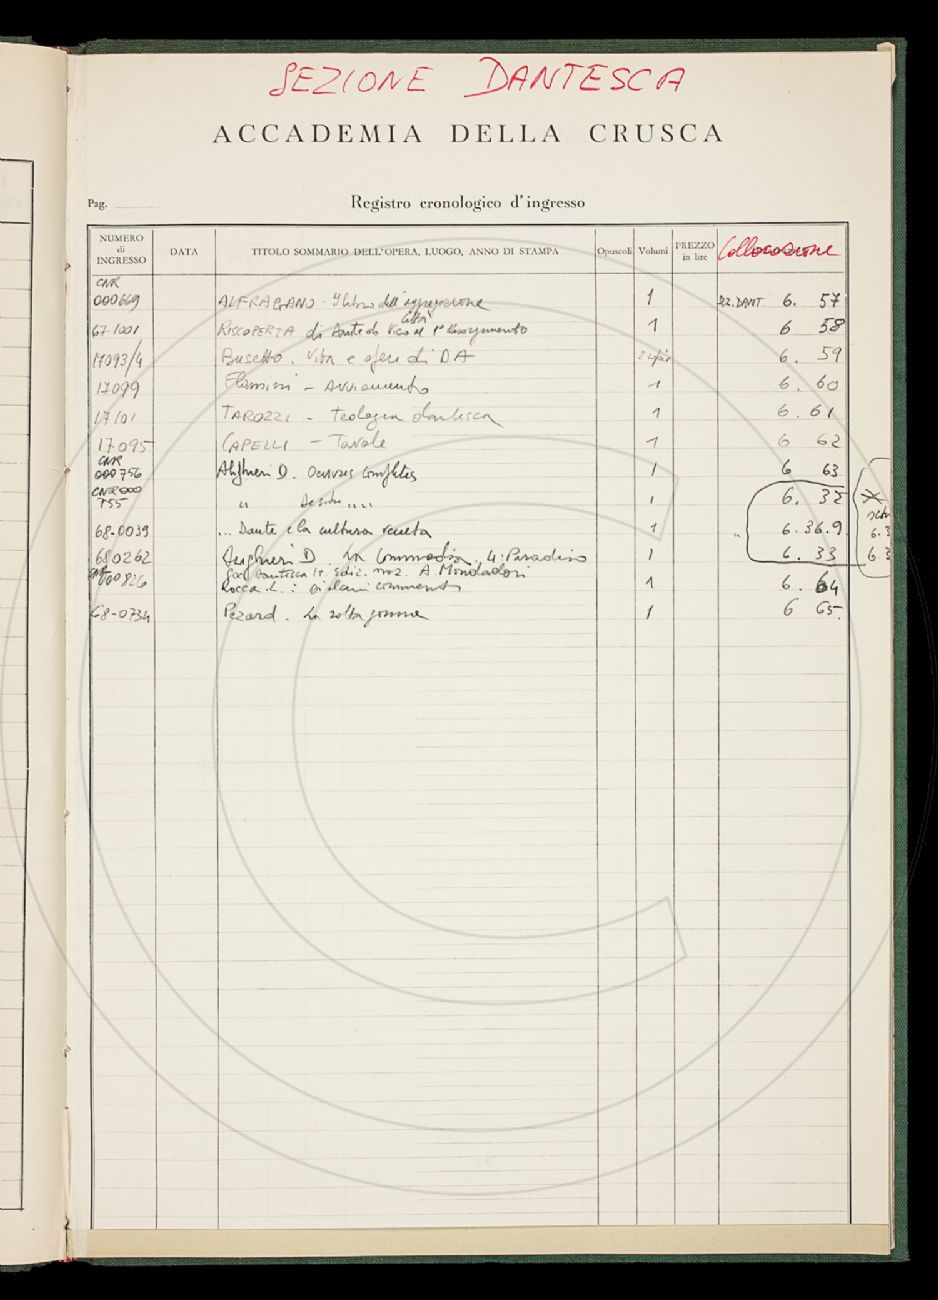 SEZIONE DANTESCA
ACCADEMIA DELLA CRUSCA
Pag.
Registro cronologico d'ingresso
NUMERO di INGRESSO DATA TITOLO SOMMARIO DELL'OPERA, LUOGO, ANNO DI STAMPA Opuscoli Volumi PREZZO in lire Collocazione
CNR
000669 ALFRAGANO - Il libro dell'aggregazione 1 SEZ. DANT 6. 57
67-1001 RISCOPERTA di Dante da Vico al 1° Risorgimento 1 6 58
17093/4 Busetto. Vita e opere di D.A 6. 59
17099 Flamini - Avviamento 1 6. 60
17101 TAROZZI - Teologia dantesca 1 6. 61
17095 CAPELLI - Tavole 1 6 62
CNR
000756 Alighieri D. Oeuvres Complètes 1 6 63
CNR 000
755 " 1 6. 32
68-0039 ... Dante e la cultura veneta 1 6.36.9
680262 Alighieri D. La Commedia. 4: Paradiso 1 6. 33 6.3
Soc. Dantesca It. Ediz. naz. A. Mondadori
000826 Rocca L.: Di alcuni commenti 1 6. 64
68-0734 Pézard. La rotta gonna 1 6 65.